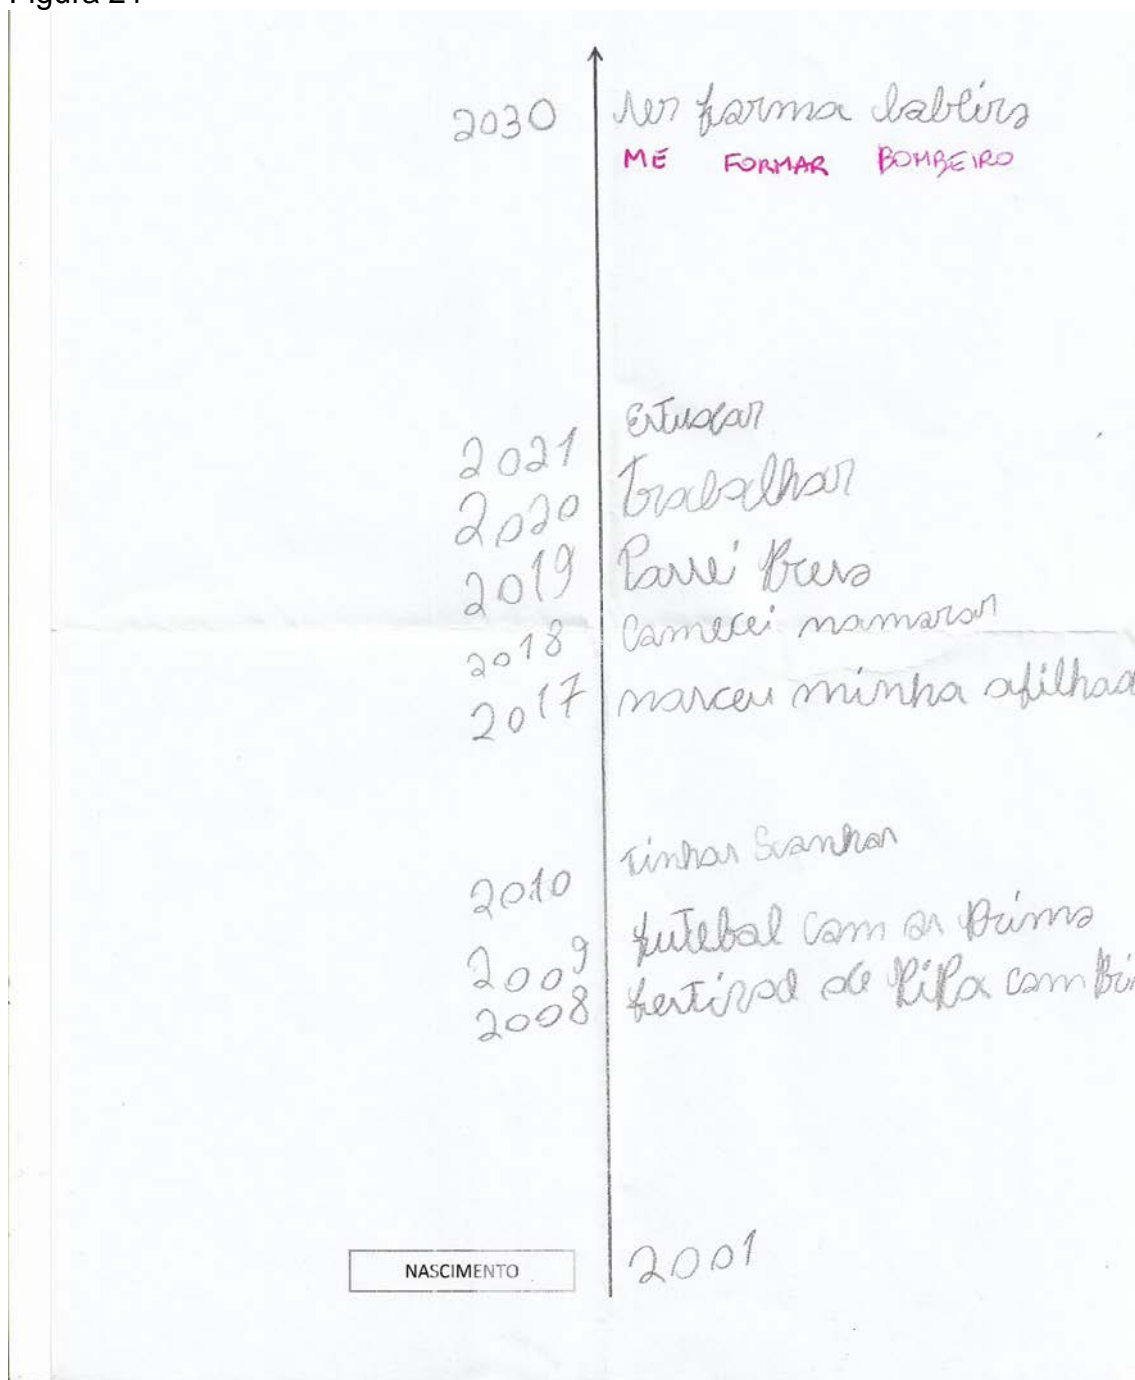 Figura
2030 forma
ME FORMAR BOMBEIRO
2021 Estudar
2020 Trabalhar
2019 Preso
2018 Comecei namorar
2017 nasceu minha afilhad
2010 tinhar
2009 futebol com os Primo
2008 festival de PiPa com Pri
NASCIMENTO 2001